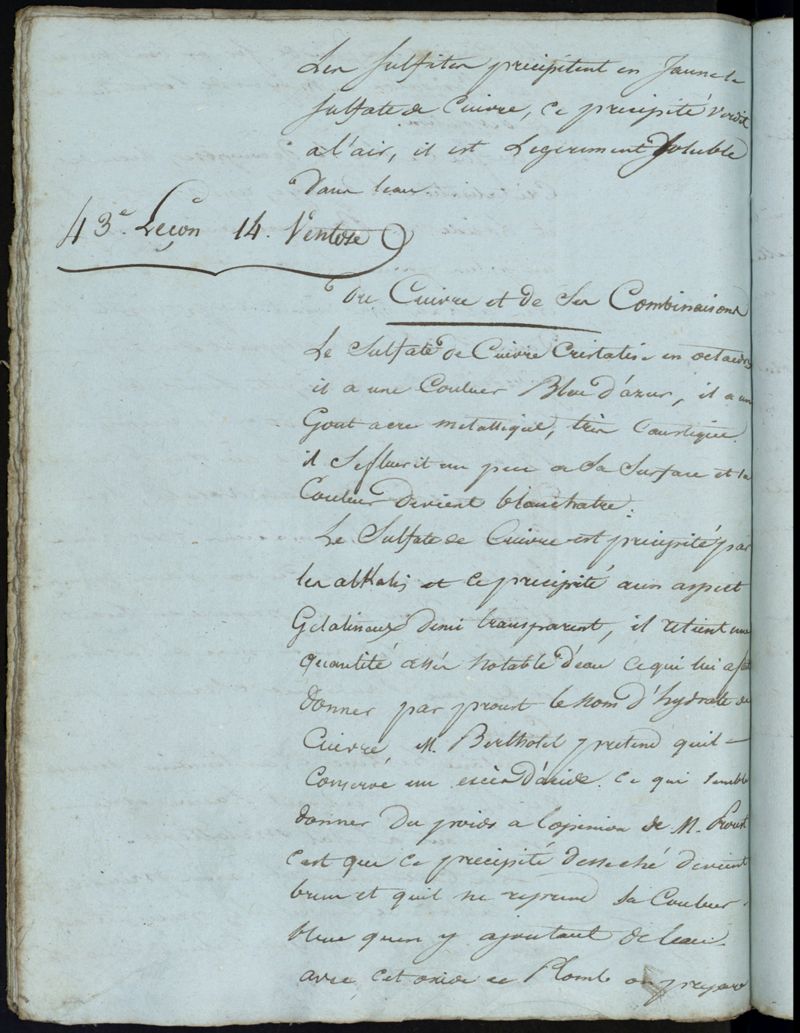 Les sulfites precipitent en Jaune le
sulfate de Cuivre, ce precipité verdit
a l'air, il est Legerement soluble
dans leau
43e Leçon 14. Ventose
du Cuivre et de Ses Combinaisons
Le Sulfate de Cuivre Cristalise en octaedres
il a une Couluer Bleu d'azur, il a un
Gout acre metallique, très Caustique
il Sefluerit un peu a Sa Surface et la
Couleur devient blanchatre:
Le Sulfate de Cuivre est precipité par
les alkalis et ce precipité a un aspect
Gelatineux demi transparent, il retient une
quantité assés notable d'eau ce qui lui a fait
donner par proust le nom d'hydrate de
Cuivre M. Berthollet pretend quil
Conserve un excès d'acide. Ce qui semble
donner du poids a l'opinion de M. Proust
c'est que ce precipité desseché devient
brun et quil ne reprend sa Couluer
bleue quen y ajoutant de leau
avec cet oxide de Plomb on prepare